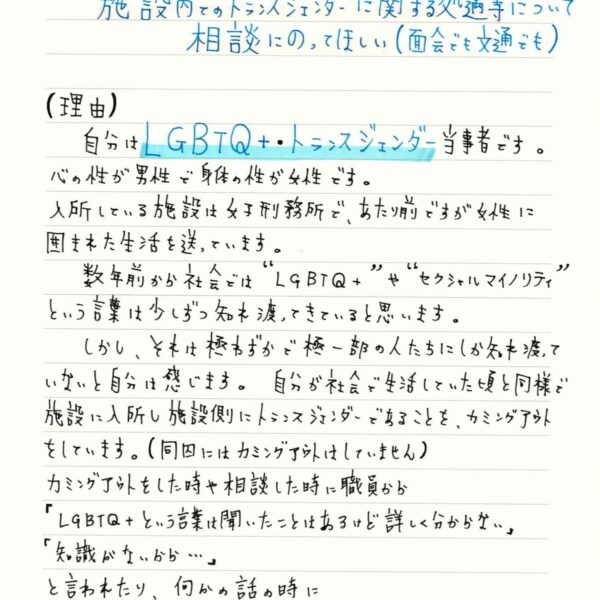 施設内でのトランスジェンダーに関する処遇等について
相談にのってほしい(面会でも文通でも)
(理由)
自分はLGBTQ+・トランスジェンダー当事者です。
心の性が男性で身体の性が女性です。
入所している施設は女子刑務所で、あたり前ですが女性に
囲まれた生活を送っています。
数年前から社会では“LGBTQ+”や“セクシャルマイノリティ”
という言葉は少しずつ知れ渡ってきていると思います。
しかし、それは極わずかで極一部の人たちにしか知れ渡って
いないと自分は感じます。 自分が社会で生活していた頃と同様で
施設に入所し施設側にトランスジェンダーであることを、カミングアウト
をしています。(同囚にはカミングアウトはしていません)
カミングアウトをした時や相談した時に職員から
「LGBTQ+という言葉は聞いたことはあるけど詳しく分からない」
「知識がないから…」
と言われたり、何かの話の時に